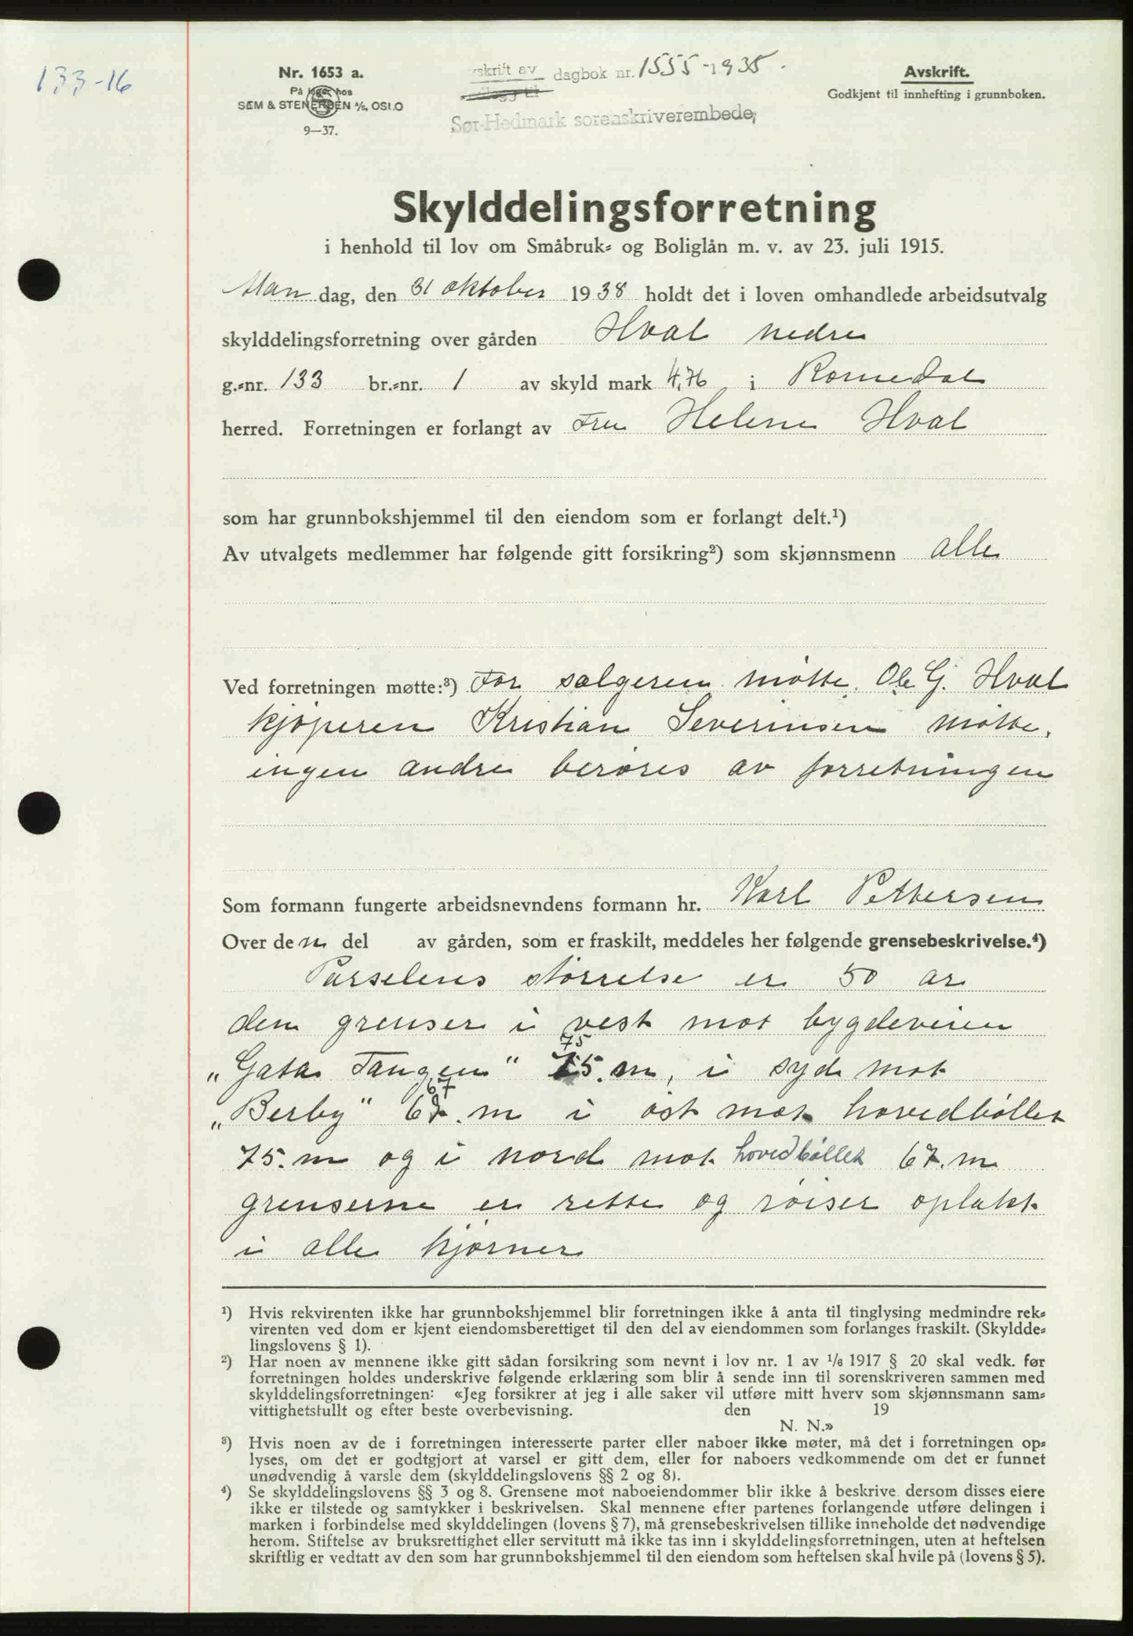 133-16
Nr. 1653 a.
På lager hos
SEM & STENERSEN A/S, OSLO
9—37.
skrift av dagbok nr. 1555-1935.
Sør-Hedmark sorenskriverembede,
Avskrift.
Godkjent til innhefting i grunnboken.
Skylddelingsforretning
i henhold til lov om Småbruk- og Boliglån m. v. av 23. juli 1915.
Man dag, den 31 oktober 1938 holdt det i loven omhandlede arbeidsutvalg
skylddelingsforretning over gården Hval nedre
g.-nr. 133 br.-nr. 1 av skyld mark 4,76 i Romedal
herred. Forretningen er forlangt av Fru Helene Hval
som har grunnbokshjemmel til den eiendom som er forlangt delt.¹)
Av utvalgets medlemmer har følgende gitt forsikring²) som skjønnsmenn alle
Ved forretningen møtte:³) For selgeren møtte Ole G. Hval
kjøperen Kristian Severinsen møtte,
ingen andre berøres av forretningen
Som formann fungerte arbeidsnevndens formann hr. Karl Pettersen
Over den del av gården, som er fraskilt, meddeles her følgende grensebeskrivelse.⁴)
Parselens størrelse er 50 ar
den grenser i vest mot bygdeveien
75
"Gata Tangen" 75. m, i syd mot
67
"Berby" 67. m i øst mot hovedbøllet
75. m og i nord mot hovedbøllet 67. m
grenserne er rette og røiser oplakt
i alle hjørner
¹) Hvis rekvirenten ikke har grunnbokshjemmel blir forretningen ikke å anta til tinglysing medmindre rek-
virenten ved dom er kjent eiendomsberettiget til den del av eiendommen som forlanges fraskilt. (Skyldde-
lingslovens § 1).
²) Har noen av mennene ikke gitt sådan forsikring som nevnt i lov nr. 1 av ¹/₆ 1917 § 20 skal vedk. før
forretningen holdes underskrive følgende erklæring som blir å sende inn til sorenskriveren sammen med
skylddelingsforretningen: «Jeg forsikrer at jeg i alle saker vil utføre mitt hverv som skjønnsmann sam-
vittighetsfullt og efter beste overbevisning. den 19
N. N.»
³) Hvis noen av de i forretningen interesserte parter eller naboer ikke møter, må det i forretningen op-
lyses, om det er godtgjort at varsel er gitt dem, eller for naboers vedkommende om det er funnet
unødvendig å varsle dem (skylddelingslovens §§ 2 og 8).
⁴) Se skylddelingslovens §§ 3 og 8. Grensene mot naboeiendommer blir ikke å beskrive dersom disses eiere
ikke er tilstede og samtykker i beskrivelsen. Skal mennene efter partenes forlangende utføre delingen i
marken i forbindelse med skylddelingen (lovens § 7), må grensebeskrivelsen tillike inneholde det nødvendige
herom. Stiftelse av bruksrettighet eller servitutt må ikke tas inn i skylddelingsforretningen, uten at heftelsen
skriftlig er vedtatt av den som har grunnbokshjemmel til den eiendom som heftelsen skal hvile på (lovens § 5).